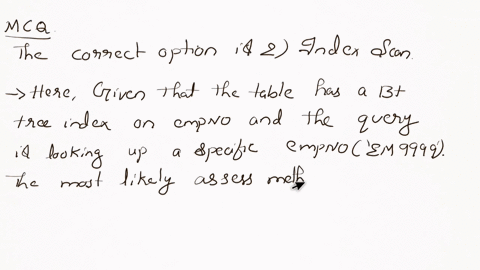 MCQ
The correct option is 2) Index Scan.
→ Here, Given that the table has a B+
tree index on empNO and the query
is looking up a specific empNO('EM9999').
The most likely assess meth